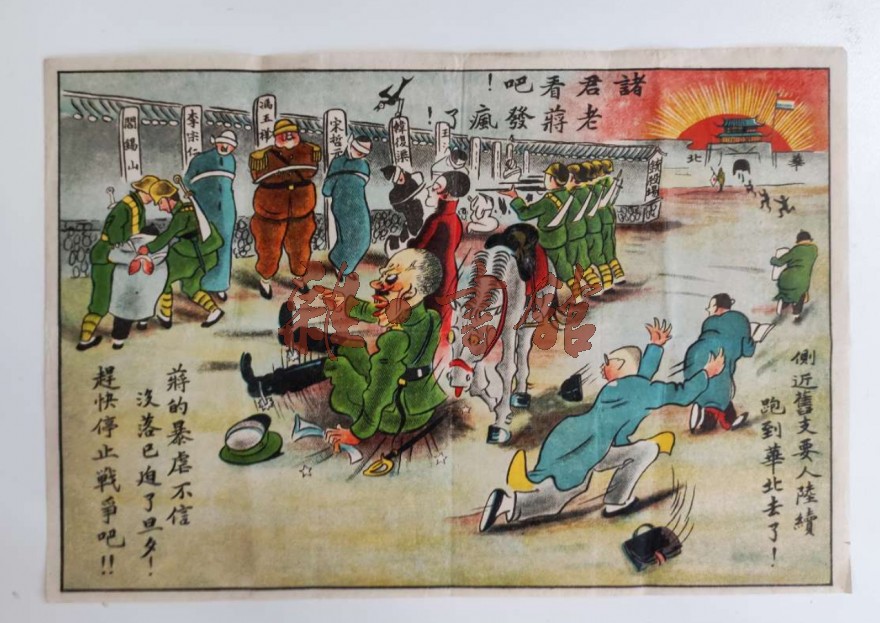 諸君看吧!
老蔣發瘋了!
華北
韓復渠
宋哲元
馮玉祥
李宗仁
閻錫山
側近舊支要人陸續
跑到華北去了!
蔣的暴虐不信
沒落已迫了旦夕!
趕快停止戰爭吧!!
雜書館